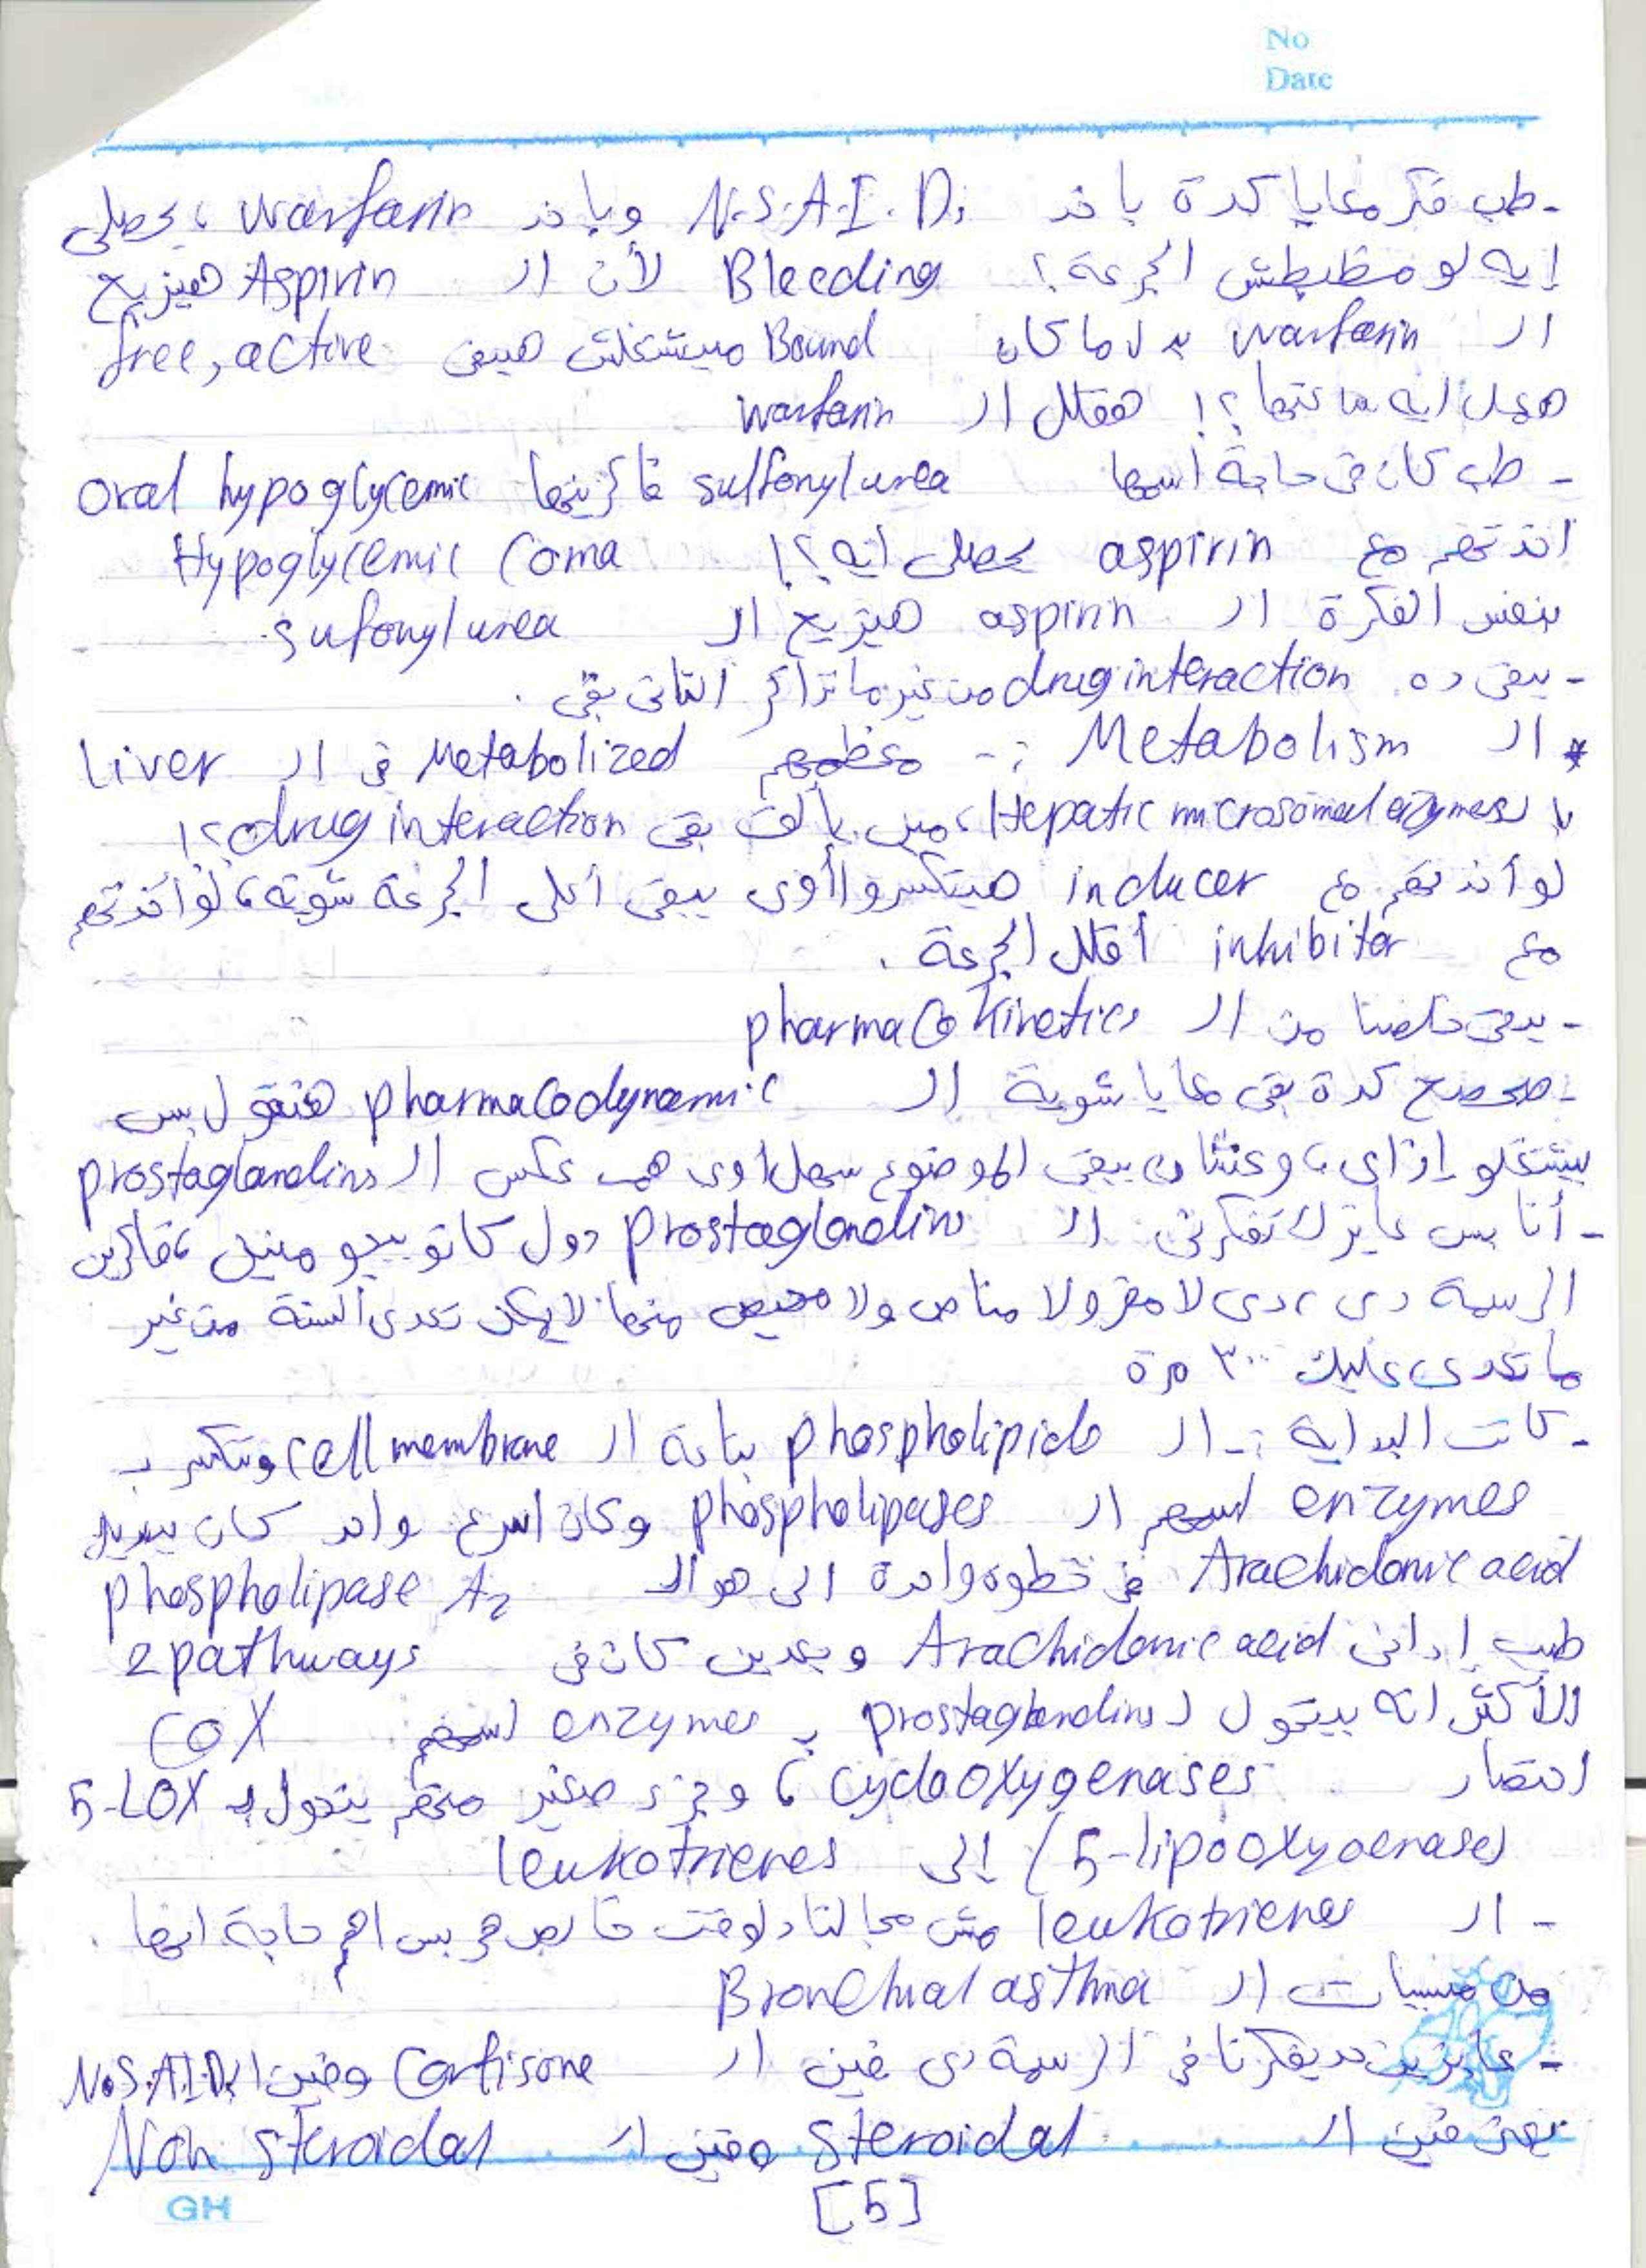 No
Date
- طب فكر معايا كدة باخد N.S.A.I.Ds وباخد warfarin، يحصلي
إيه لو مظبطش الجرعة؟ Bleeding لأن الـ Aspirin هيزيح
الـ warfarin بدل ما كان Bound مبيشتغلش هيبقى free, active
هعمل إيه ساعتها؟! هقلل الـ warfarin
- طب كان في حاجة اسمها sulfonylurea فاكرينها oral hypoglycemic
اخدتهم مع aspirin يحصلي إيه؟! Hypoglycemic Coma
بنفس الفكرة الـ aspirin هيزيح الـ sufonylurea
- يبقى ده drug interaction من غير ما تذاكر التاني بقى.
* الـ Metabolism :- معظمهم Metabolized في الـ Liver
بالـ (Hepatic microsomal enzymes)، مين يألف بقى drug interaction؟!
لو أخدتهم مع inducer هيتكسروا أوي يبقى أعلي الجرعة شوية، لو أخدتهم
مع inhibitor أقلل الجرعة.
- يبقى خلصنا من الـ pharmacokinetics
- صحصح كدة بقى معايا شوية الـ pharmacodynamic هنقول بس
بيشتغلو إزاي، وعشان يبقى الموضوع سهل اوي هما عكس الـ prostaglandins
- أنا بس عايزك تفكرني الـ prostaglandins دول كانو بيجو منين، فاكرين
الرسمة دي، دي لا مفر ولا مناص ولا محيص منها لا يمكن تعدي السنة من غير
ما تعدي عليك ٣٠٠ مرة
- كانت البداية :- الـ phospholipids بتاعة الـ cell membrane وبتتكسر بـ
enzymes اسمهم الـ phospholipases وكان اسرع واحد كان بيديني
Arachidonic acid في خطوة واحدة الي هو الـ phospholipase A2
طيب إداني Arachidonic acid وبعدين كان في 2 pathways
الأكتر انه بيتحول لـ prostaglandins بـ enzymes اسمهم COX
اختصار cyclooxygenases، وجزء صغير منهم يتحول بـ 5-LOX
(5-lipooxygenase) إلى leukotrienes
- الـ leukotrienes مش مجالنا دلوقت خالص هي بس اهم حاجة انها
من مسببات الـ Bronchial asthma
- عايزين حد يفكرنا في الرسمة دي فين الـ Cortisone وفين الـ N.S.A.I.Ds
يعني فين الـ Steroidal وفين الـ Non steroidal
[5]
GH